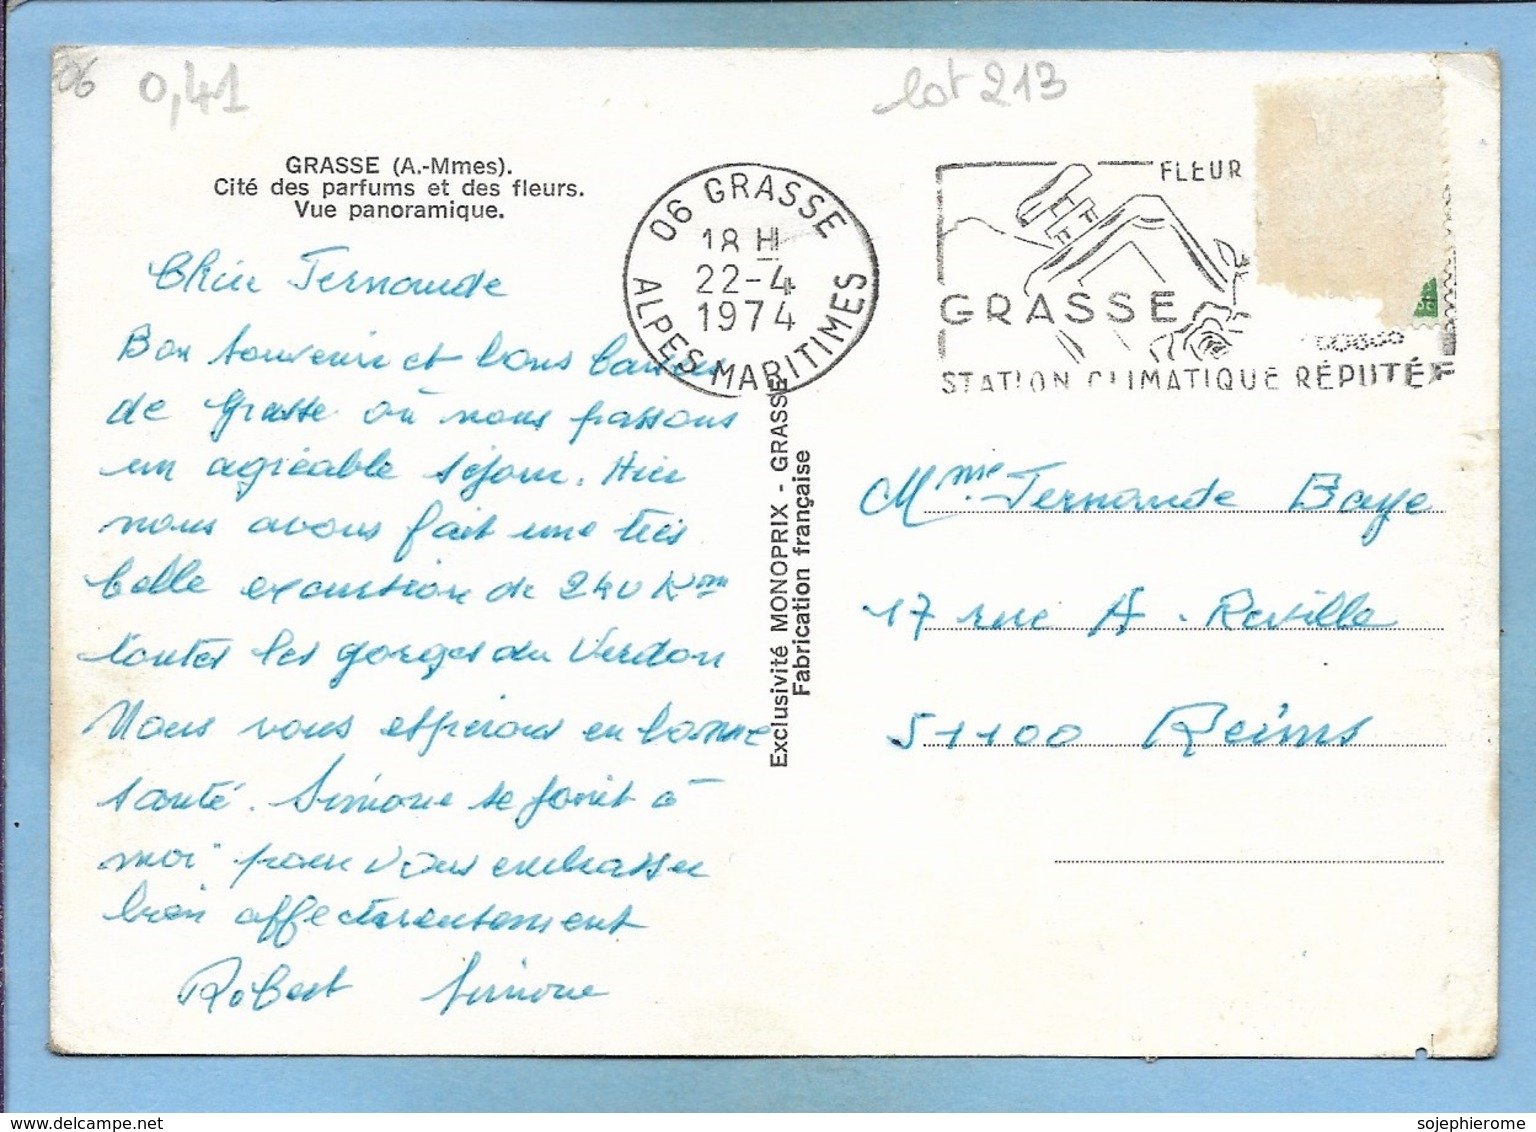 06
0,41
lot 213
GRASSE (A.-Mmes).
Cité des parfums et des fleurs.
Vue panoramique.
06 GRASSE
18 H
22-4
1974
ALPES MARITIMES
FLEUR
GRASSE
STATION CLIMATIQUE RÉPUTÉE
Chère Fernande
Bon souvenir et bons baisers
de Grasse où nous passons
un agréable séjour. Hier
nous avons fait une très
belle excursion de 240 Km
toutes les gorges du Verdon
Nous vous espérons en bonne
santé. Simone se joint à
moi pour vous embrasser
bien affectueusement
Robert Simone
Exclusivité MONOPRIX - GRASSE
Fabrication française
Mme Fernande Baye
17 rue A. Reville
51100 Reims
sojephierome